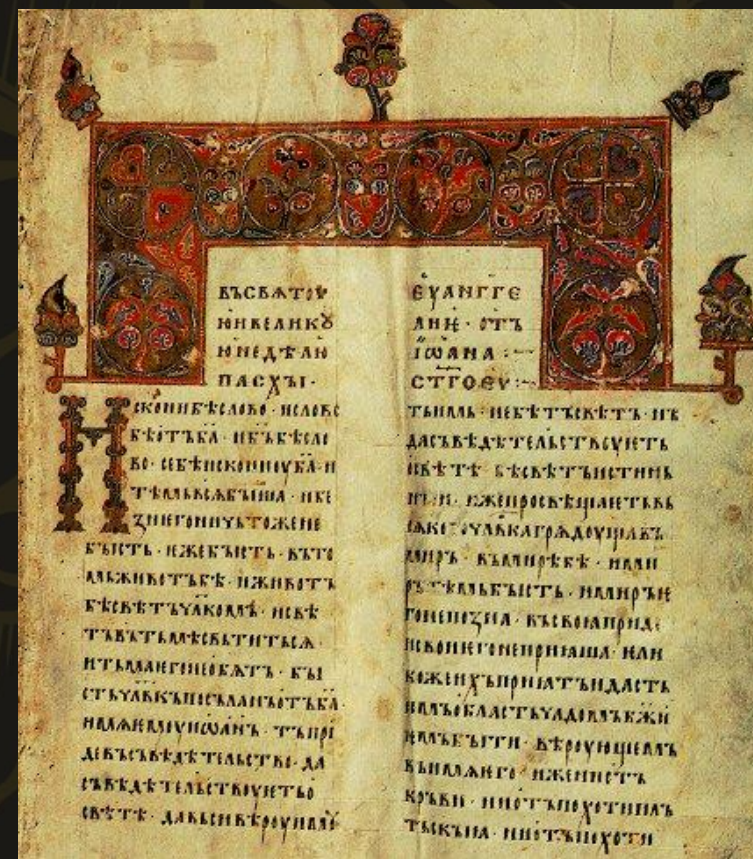 ВЪСВѦТОУ
ЮИВЕЛИКꙊ
ЮНЕДѢЛЮ
ПАСХЪІ·
СКОНИБѢСЛОВО·ИСЛОВО
БѢОТЪБА҃·ИБЪ҃БѢСЛО
ВО·СЕБѢИСКОНИОУБА҃·И
ТѢМЬВСѦБЫША·ИБЕ
ЗНЕГОНИЧЬТОЖЕНЕ
БЪІСТЬ·ИЖЕБЪІСТЬ·ВЪТО
МЬЖИВОТЪБѢ·ИЖИВОТЪ
БѢСВѢТЪЧЛ҃КОМЪ·ИСВѢ
ТЪВЪТЬМѢСВЬТИТЬСѦ·
ИТЬМАЕГОНЕОБѦТЪ·БЪІ
СТЬЧЛ҃ВКЪПОСЪЛАНЪОТЪБА҃·
ИМѦЕМОУИѠАНЪ·ТЪПРІ
ДЕВЪСЪВѢДѢТЕЛЬСТВО·ДА
СЪВѢДѢТЕЛЬСТВОУЕТЬО
СВѢТѢ·ДАВЬСИВѢРОУИМОУ
ЕУАНГГЕ
ЛИЮ·ОТЪ
ІѠАНА:~
СТГ҃ОЕУ:~
ТЬИМЬ·НЕБѢТЪСВѢТЪ·НЪ
ДАСЪВѢДѢТЕЛЬСТВОУЕТЬ
ОСВѢТѢ·БѢСВѢТЪИСТИНЬ
НЪИ·ИЖЕПРОСВѢЩАЕТЬВЬ
СѦКОГОЧЛ҃ВКАГРѦДОУЩАВЪ
МИРЪ·ВЪМИРѢБѢ·ИМИ
РЪТѢМЬБЪІСТЬ·ИМИРЪЕ
ГОНЕПОЗНА·ВЪСВОЯПРИДЕ
ИСВОИЕГОНЕПРИЯША·ЕЛИ
КОЖЕИХЪПРИЯТЪИДАСТЬ
ИМЪОБЛАСТЬЧѦДОМЪБЖ҃И
ЕМЪБЪІТИ·ВѢРОУЮЩЕМЪ
ВЪИМѦЕГО·ИЖЕНИОТЪ
КРЪВИ·НИОТЪПОХОТИПЛЪ
ТЬСКЪІѦ·НИОТЪПОХОТИ